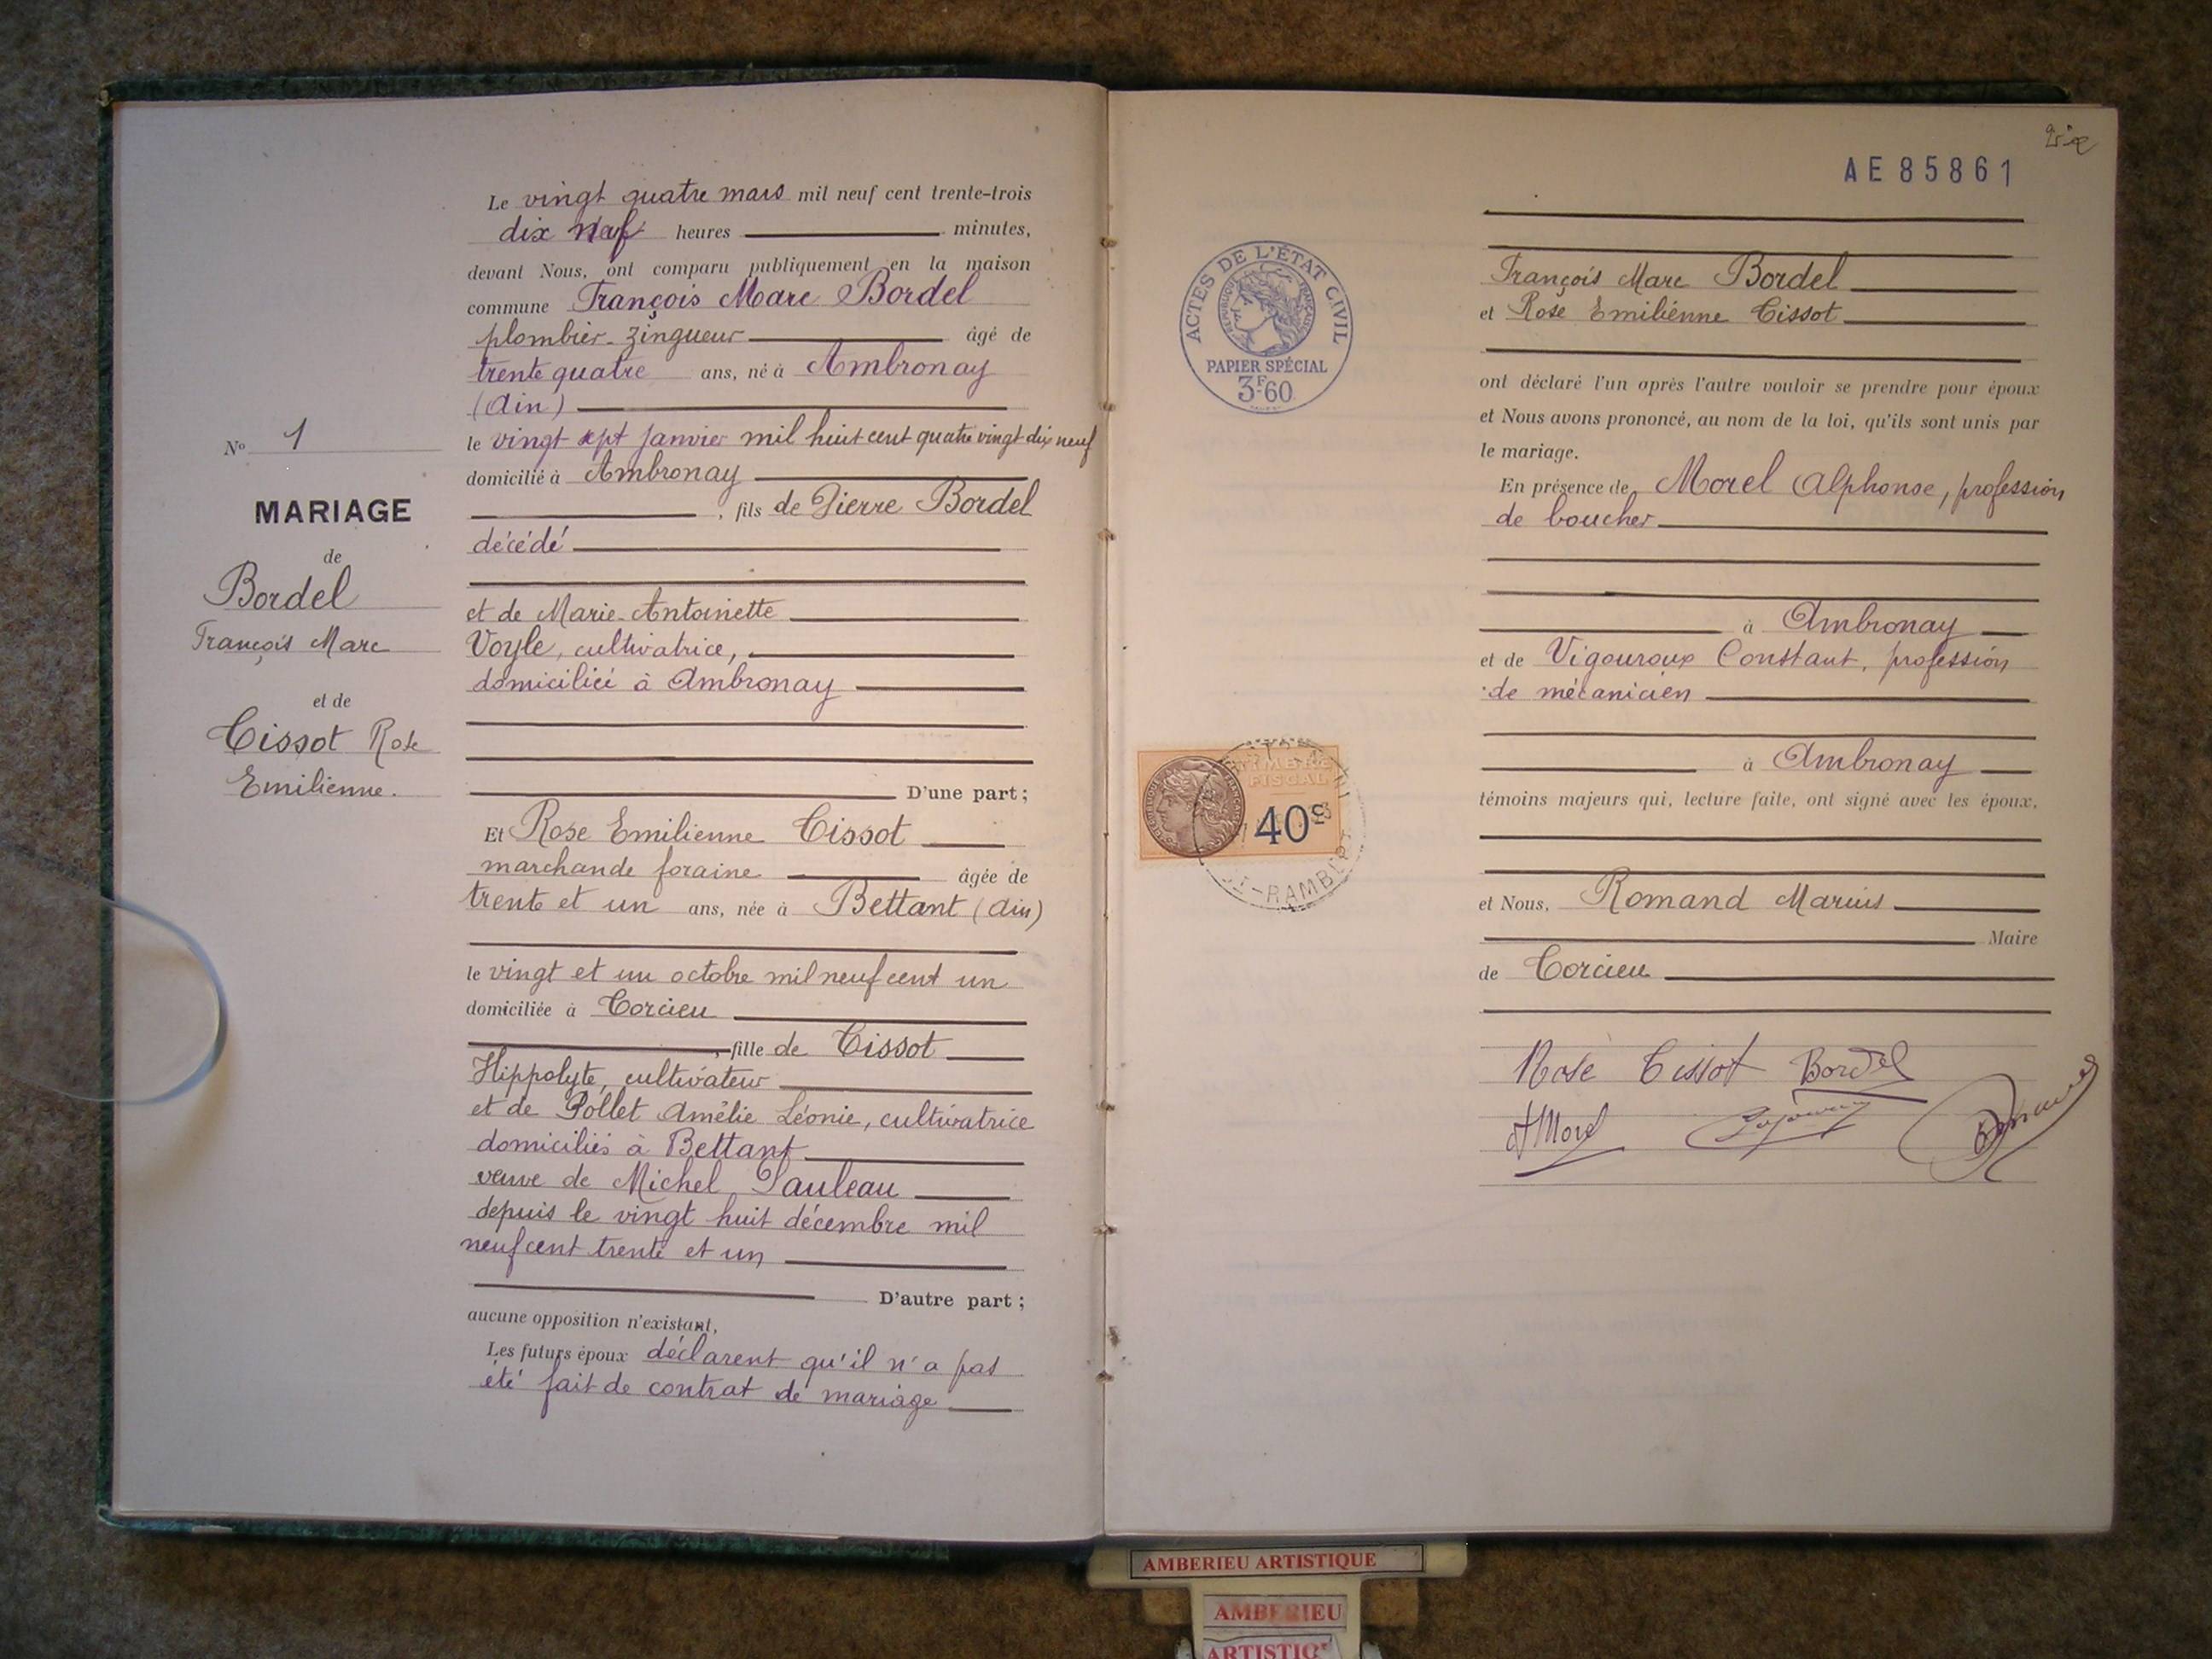 N° 1
MARIAGE
de
Bordel
François Marc
et de
Tissot Rose
Emilienne.
Le vingt quatre mars mil neuf cent trente-trois
dix neuf heures minutes,
devant Nous, ont comparu publiquement en la maison
commune François Marc Bordel
plombier-zingueur âgé de
trente quatre ans, né à Ambronay
(Ain)
le vingt sept janvier mil huit cent quatre vingt dix neuf
domicilié à Ambronay
, fils de Pierre Bordel
décédé
et de Marie-Antoinette
Voyle, cultivatrice,
domiciliée à Ambronay
D'une part;
Et Rose Emilienne Tissot
marchande foraine âgée de
trente et un ans, née à Bettant (Ain)
le vingt et un octobre mil neuf cent un
domiciliée à Torcieu
, fille de Tissot
Hippolyte, cultivateur
et de Pollet Amélie Léonie, cultivatrice
domiciliés à Bettant
veuve de Michel Pauleau
depuis le vingt huit décembre mil
neuf cent trente et un
D'autre part;
aucune opposition n'existant,
Les futurs époux déclarent qu'il n'a pas
été fait de contrat de mariage
AE85861
ACTES DE L'ÉTAT CIVIL
RÉPUBLIQUE FRANÇAISE
PAPIER SPÉCIAL
3F60
TIMBRE
FISCAL
40c
François Marc Bordel
et Rose Emilienne Tissot
ont déclaré l'un après l'autre vouloir se prendre pour époux
et Nous avons prononcé, au nom de la loi, qu'ils sont unis par
le mariage.
En présence de Morel Alphonse, profession
de boucher
à Ambronay
et de Vigouroux Constant, profession
de mécanicien
à Ambronay
témoins majeurs qui, lecture faite, ont signé avec les époux,
et Nous, Romand Marius
Maire
de Torcieu
Rose Tissot Bordel
A Morel
AMBERIEU ARTISTIQUE
AMBERIEU